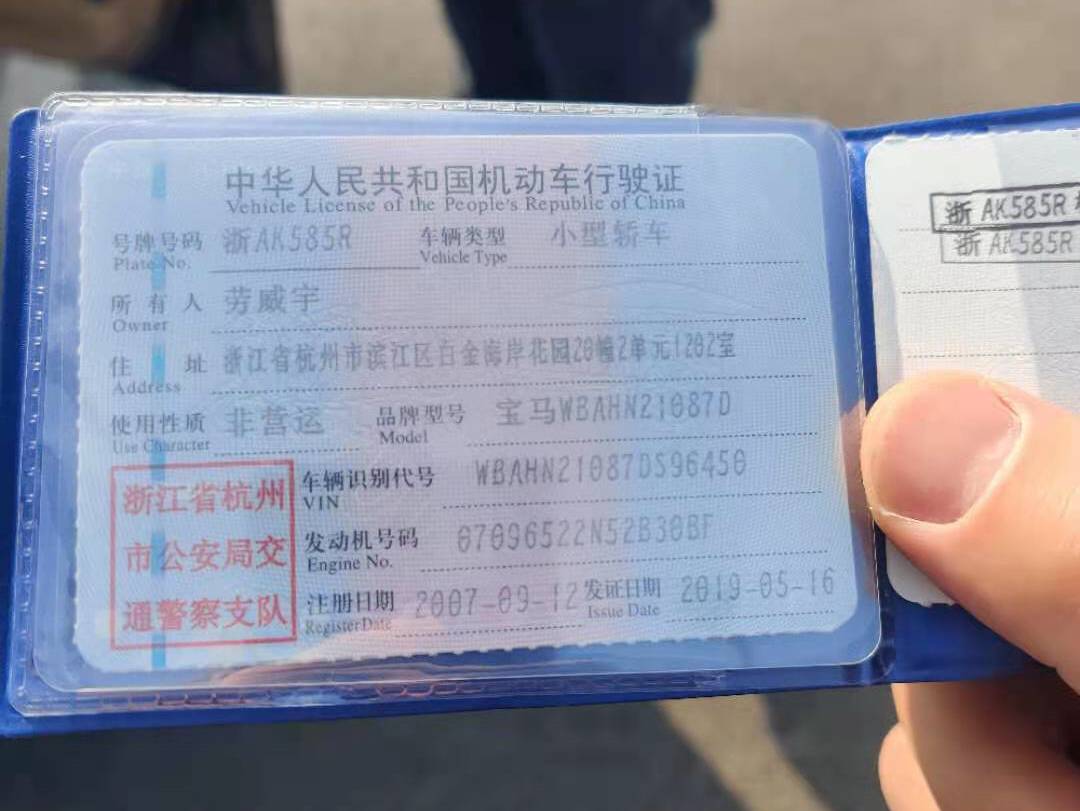 中华人民共和国机动车行驶证
Vehicle License of the People's Republic of China
号牌号码 浙AK585R 车辆类型 小型轿车
Plate No. Vehicle Type
所有人 劳威宇
Owner
住址 浙江省杭州市滨江区白金海岸花园20幢2单元1202室
Address
使用性质 非营运 品牌型号 宝马WBAHN21087D
Use Character Model
浙江省杭州
市公安局交
通警察支队
车辆识别代号 WBAHN21087DS96450
VIN
发动机号码 07096522N52B30BF
Engine No.
注册日期 2007-09-12 发证日期 2019-05-16
Register Date Issue Date
浙 AK585R
浙 AK585R